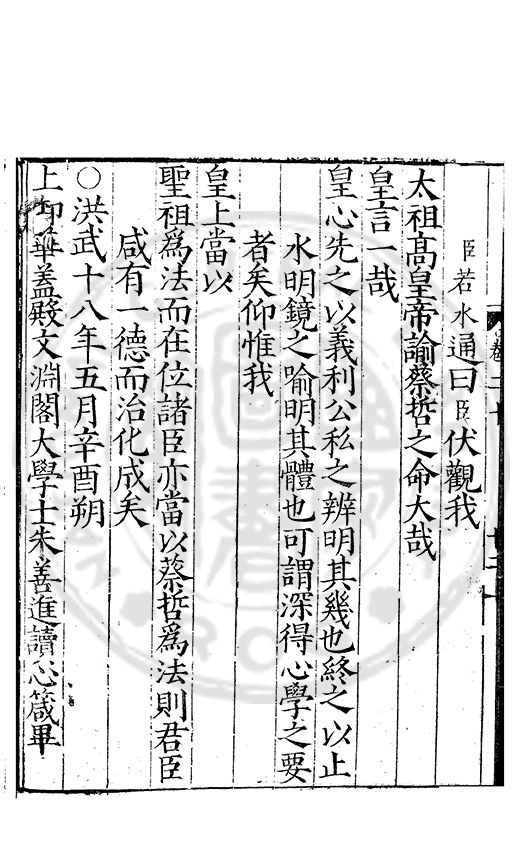 臣若水通曰臣伏觀我
太祖高皇帝諭蔡哲之命大哉
皇言一哉
皇心先之以義利公私之辨明其幾也終之以止
水明鏡之喻明其體也可謂深得心學之要
者矣仰惟我
皇上當以
聖祖爲法而在位諸臣亦當以蔡哲爲法則君臣
咸有一德而治化成矣
○洪武十八年五月辛酉朔
上御華蓋殿文淵閣大學士朱善進讀心箴畢